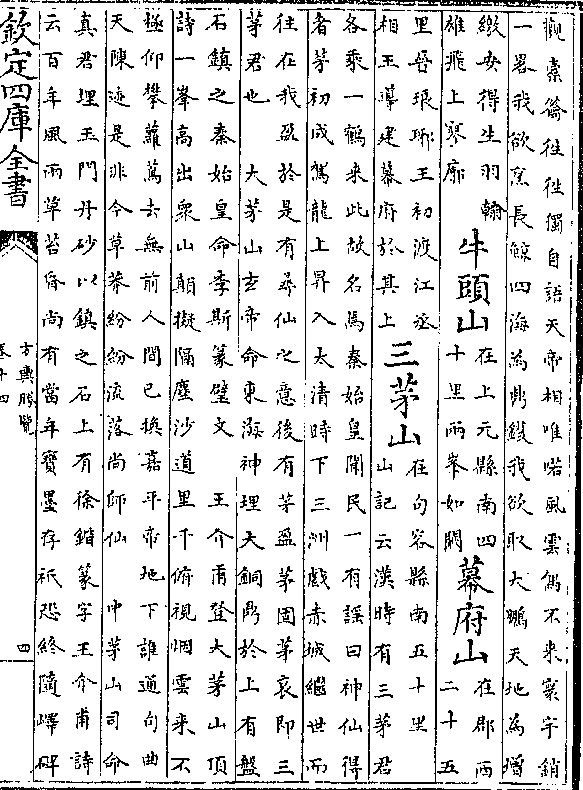 觀索篘往往獨自語天帝相唯喏風雲偶不來寰宇銷
一畧我欲烹長鯨四海為鼎鑊我欲取大鵬天地為矰
繳安得生羽翰
雄飛上寥廓
牛頭山
在上元縣南四
十里兩峯如闕
幕府山
在郡西
二十五
里晉琅琊王初渡江丞
相王導建幕府於其上
三茅山
在句容縣南五十里
山記云漢時有三茅君
各乘一鶴來此故名焉秦始皇聞民一有謡曰神仙得
者茅初成駕龍上昇入太清時下三洲戲赤城繼世而
往在我盈於是有尋仙之意後有茅盈茅固茅衷即三
茅君也 大茅山玄帝命東海神埋大銅鼎於上有盤
石鎮之秦始皇命李斯篆璧文 王介甫登大茅山頂
詩一峯高出衆山顛擬隔塵沙道里千俯視烟雲來不
極仰攀蘿蔦去無前人間已換嘉平帝地下誰通句曲
天陳迹是非今草莽紛紛流落尚師仙 中茅山司命
真君埋玉門丹砂以鎮之石上有徐鍇篆字王介甫詩
云百年風雨草苔昏尚有當年寶墨存祇恐終隨嶧碑
欽定四庫全書
方輿勝覽
卷十四
四